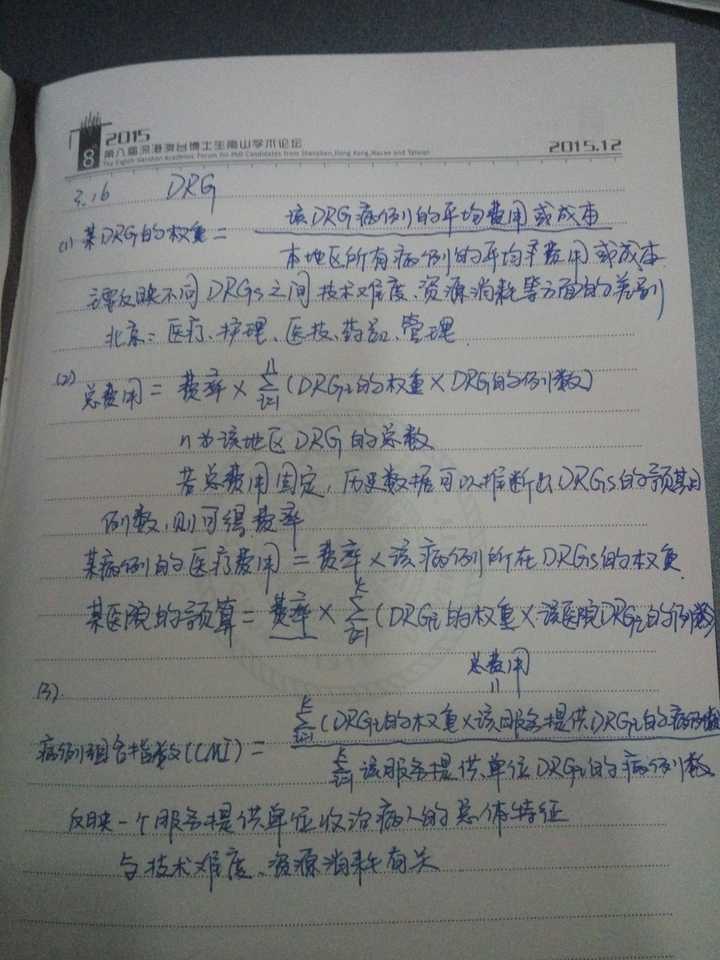 2015
第八届深港澳台博士生南山学术论坛
The Eighth Nanshan Academic Forum for PhD Candidates from Shenzhen, Hong Kong, Macao and Taiwan
8
2015.12
3.16 DRG
(1) 某DRG的权重 = 该DRG病例的平均费用或成本
本地区所有病例的平均费用或成本
主要反映不同DRGs之间技术难度、资源消耗等方面的差别
北京：医疗、护理、医技、药品、管理
(2) 总费用 = 费率 × n∑i=1 (DRGi的权重 × DRG的例数)
n为该地区DRG的总数
若总费用固定，历史数据可以推断出DRGs的预期
例数，则可得费率
某病例的医疗费用 = 费率 × 该病例所在DRGs的权重
某医院的预算 = 费率 × k∑i=1 (DRGi的权重 × 该医院DRGi的例数)
(3). 总费用
=
k∑i=1 (DRGi的权重 × 该服务提供DRGi的病例数
病例组合指数(CMI) = k∑i=1 该服务提供单位DRGi的病例数
反映一个服务提供单位收治病人的总体特征
与技术难度、资源消耗有关